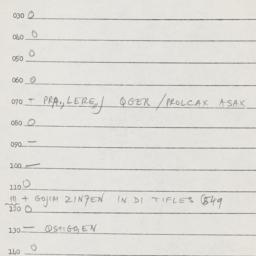 030 0
040 0
050 0
060 0
070 - PRA,,LERE,J QGER / PROLCAX ASAX
080 0
090 -
100 -
110 0
111 + GOJIM ZINZEN IN DI TIFLES 549
120 0
130 - QSHIGGEN
140 0